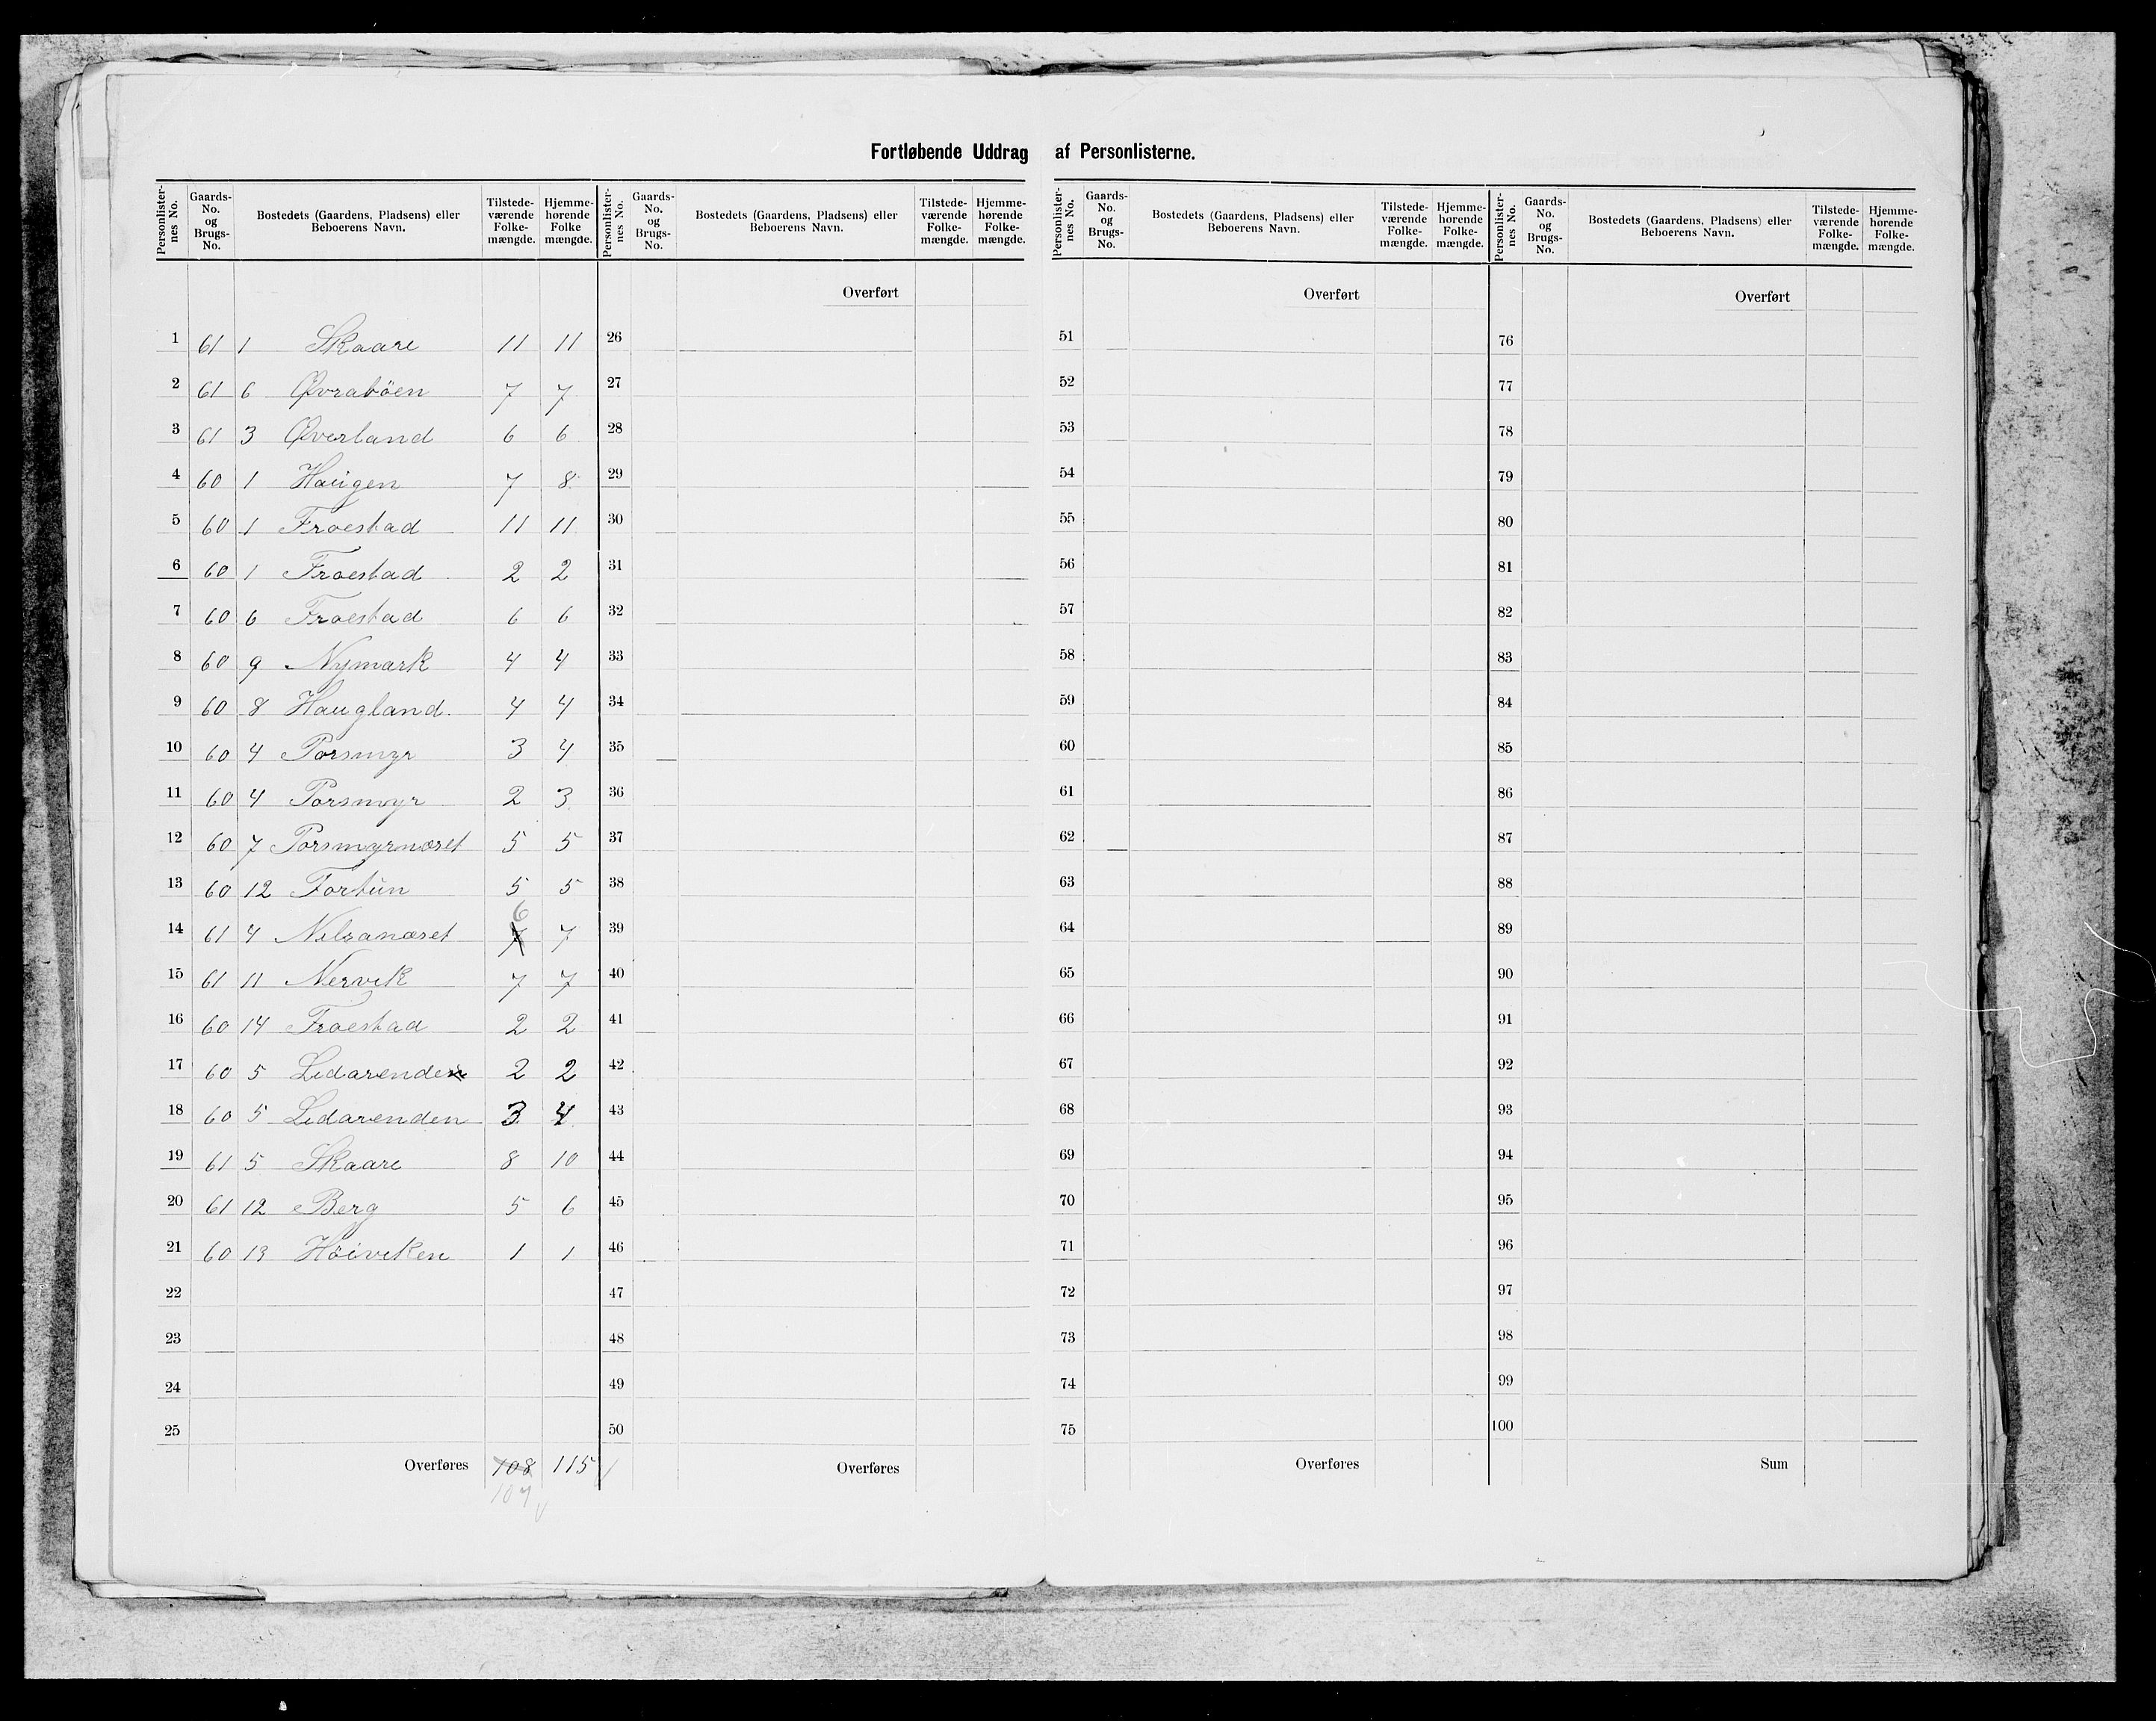 Fortløbende Uddrag af Personlisterne.
Personlister-nes No. Gaards-No. og Brugs-No. Bostedets (Gaardens, Pladsens) eller Beboerens Navn. Tilstede-værende Folke-mængde. Hjemme-hørende Folke mængde. Personlister-nes No. Gaards-No. og Brugs-No. Bostedets (Gaardens, Pladsens) eller Beboerens Navn. Tilstede-værende Folke-mængde. Hjemme-hørende Folke-mængde. Personlister-nes No. Gaards-No. og Brugs-No. Bostedets (Gaardens, Pladsens) eller Beboerens Navn. Tilstede-værende Folke-mængde. Hjemme-hørende Folke-mængde. Personlister-nes No. Gaards-No. og Brugs-No. Bostedets (Gaardens, Pladsens) eller Beboerens Navn. Tilstede-værende Folke-mængde. Hjemme-hørende Folke-mængde.
Overført Overført Overført
1 61 1 Skaare 11 11 26 51 76
2 61 6 Øvraböen 7 7 27 52 77
3 61 3 Øverland 6 6 28 53 78
4 60 1 Haugen 7 8 29 54 79
5 60 1 Froestad 11 11 30 55 80
6 60 1 Froestad 2 2 31 56 81
7 60 6 Froestad 6 6 32 57 82
8 60 9 Nymark 4 4 33 58 83
9 60 8 Haugland. 4 4 34 59 84
10 60 4 Porsmyr 3 4 35 60 85
11 60 4 Porsmyr 2 3 36 61 86
12 60 7 Porsmyrnæret 5 5 37 62 87
13 60 12 Fortun 5 5 38 63 88
14 61 4 Nilsanæret 7 6 7 39 64 89
15 61 11 Nervik 7 7 40 65 90
16 60 14 Froestad 2 2 41 66 91
17 60 5 Lidarenden 2 2 42 67 92
18 60 5 Lidarenden 3 4 43 68 93
19 61 5 Skaare 8 10 44 69 94
20 61 12 Berg 5 6 45 70 95
21 60 13 Höiviken 1 1 46 71 96
22 47 72 97
23 48 73 98
24 49 74 99
25 50 75 100
Overføres 108 115 Overføres Overføres Sum
107